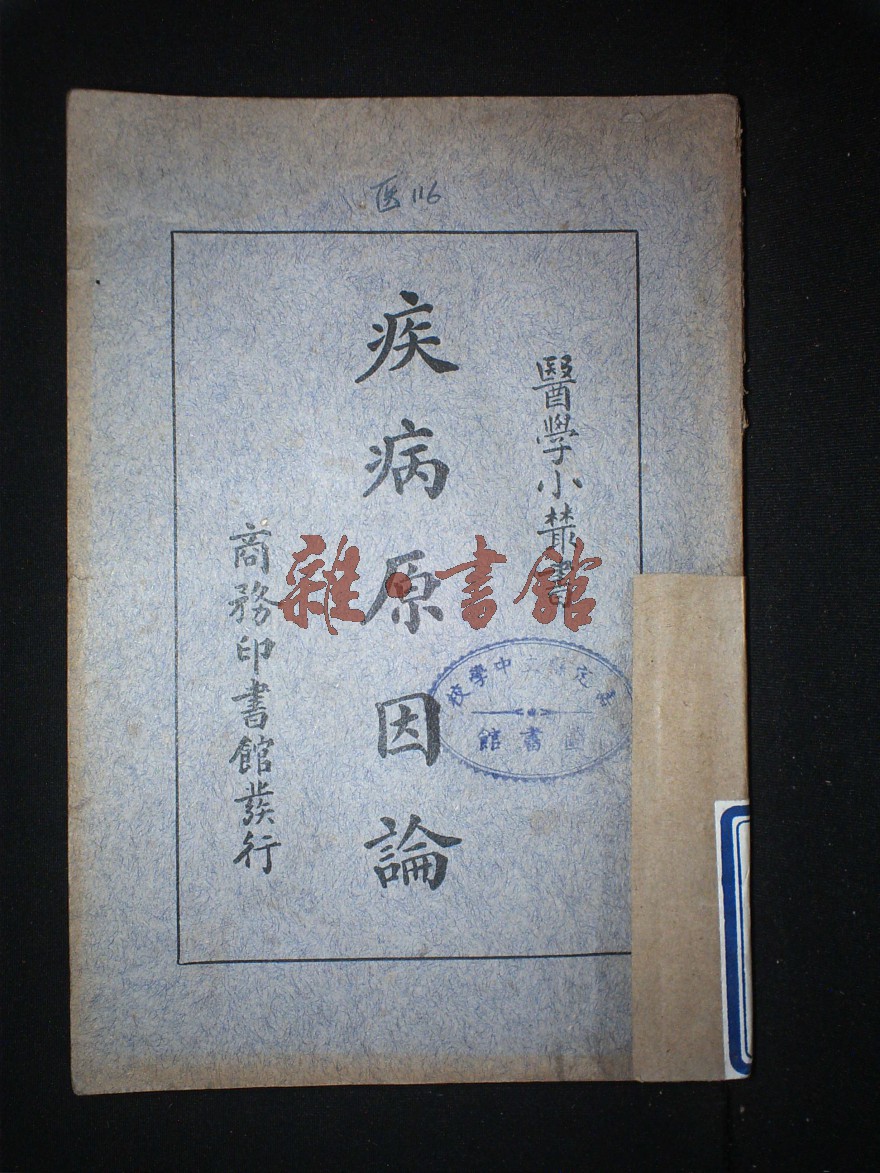 医116
醫學小叢書
疾病原因論
商務印書館發行
雜·書館
立中學校
圖書館